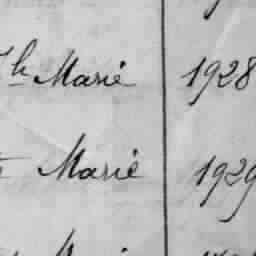 h Marie 1928
Marie 1929